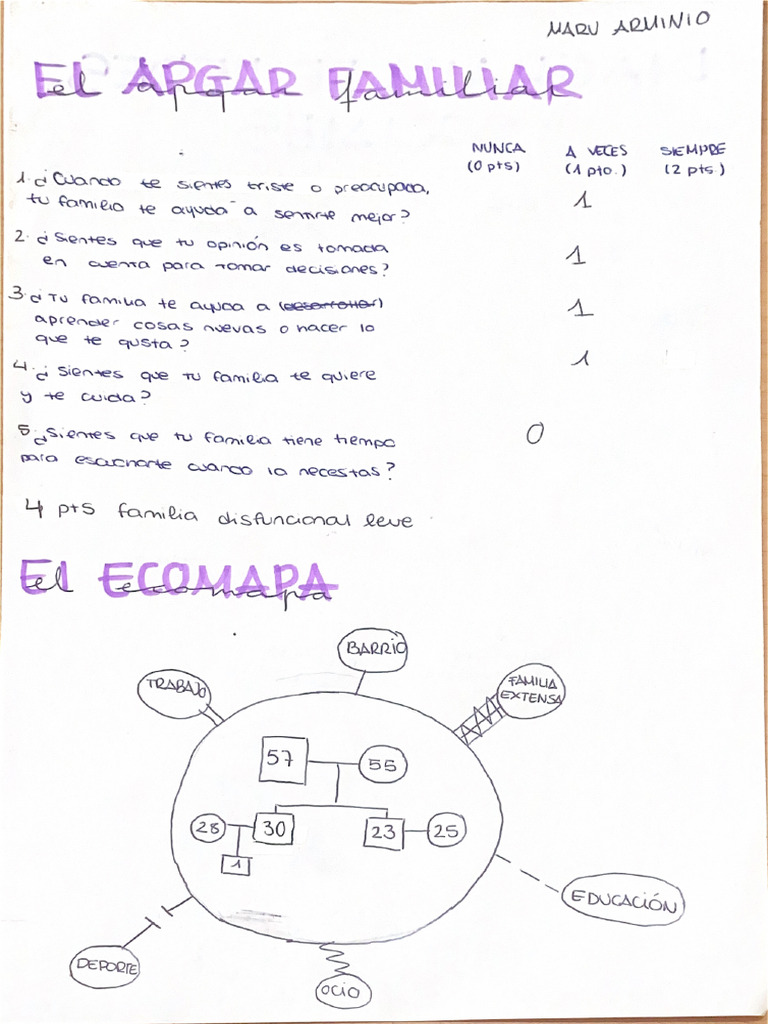 MARU ARMINIO
EL APGAR FAMILIAR
el apgar familiar
NUNCA A VECES SIEMPRE
(0 pts) (1 pto.) (2 pts.)
1. ¿Cuando te sientes triste o preocupada,
tu familia te ayuda a sentirte mejor? 1
2. ¿Sientes que tu opinión es tomada
en cuenta para tomar decisiones? 1
3. ¿Tu familia te ayuda a (desarrollar)
aprender cosas nuevas o hacer lo
que te gusta? 1
4. ¿Sientes que tu familia te quiere
y te cuida? 1
5. ¿Sientes que tu familia tiene tiempo
para escucharte cuando la necestas? 0
4 pts familia disfuncional leve
El ECOMAPA
el ecomapa
BARRIO
TRABAJO
FAMILIA
EXTENSA
57 55
28 30 23 25
1
EDUCACIÓN
DEPORTE
OCIO